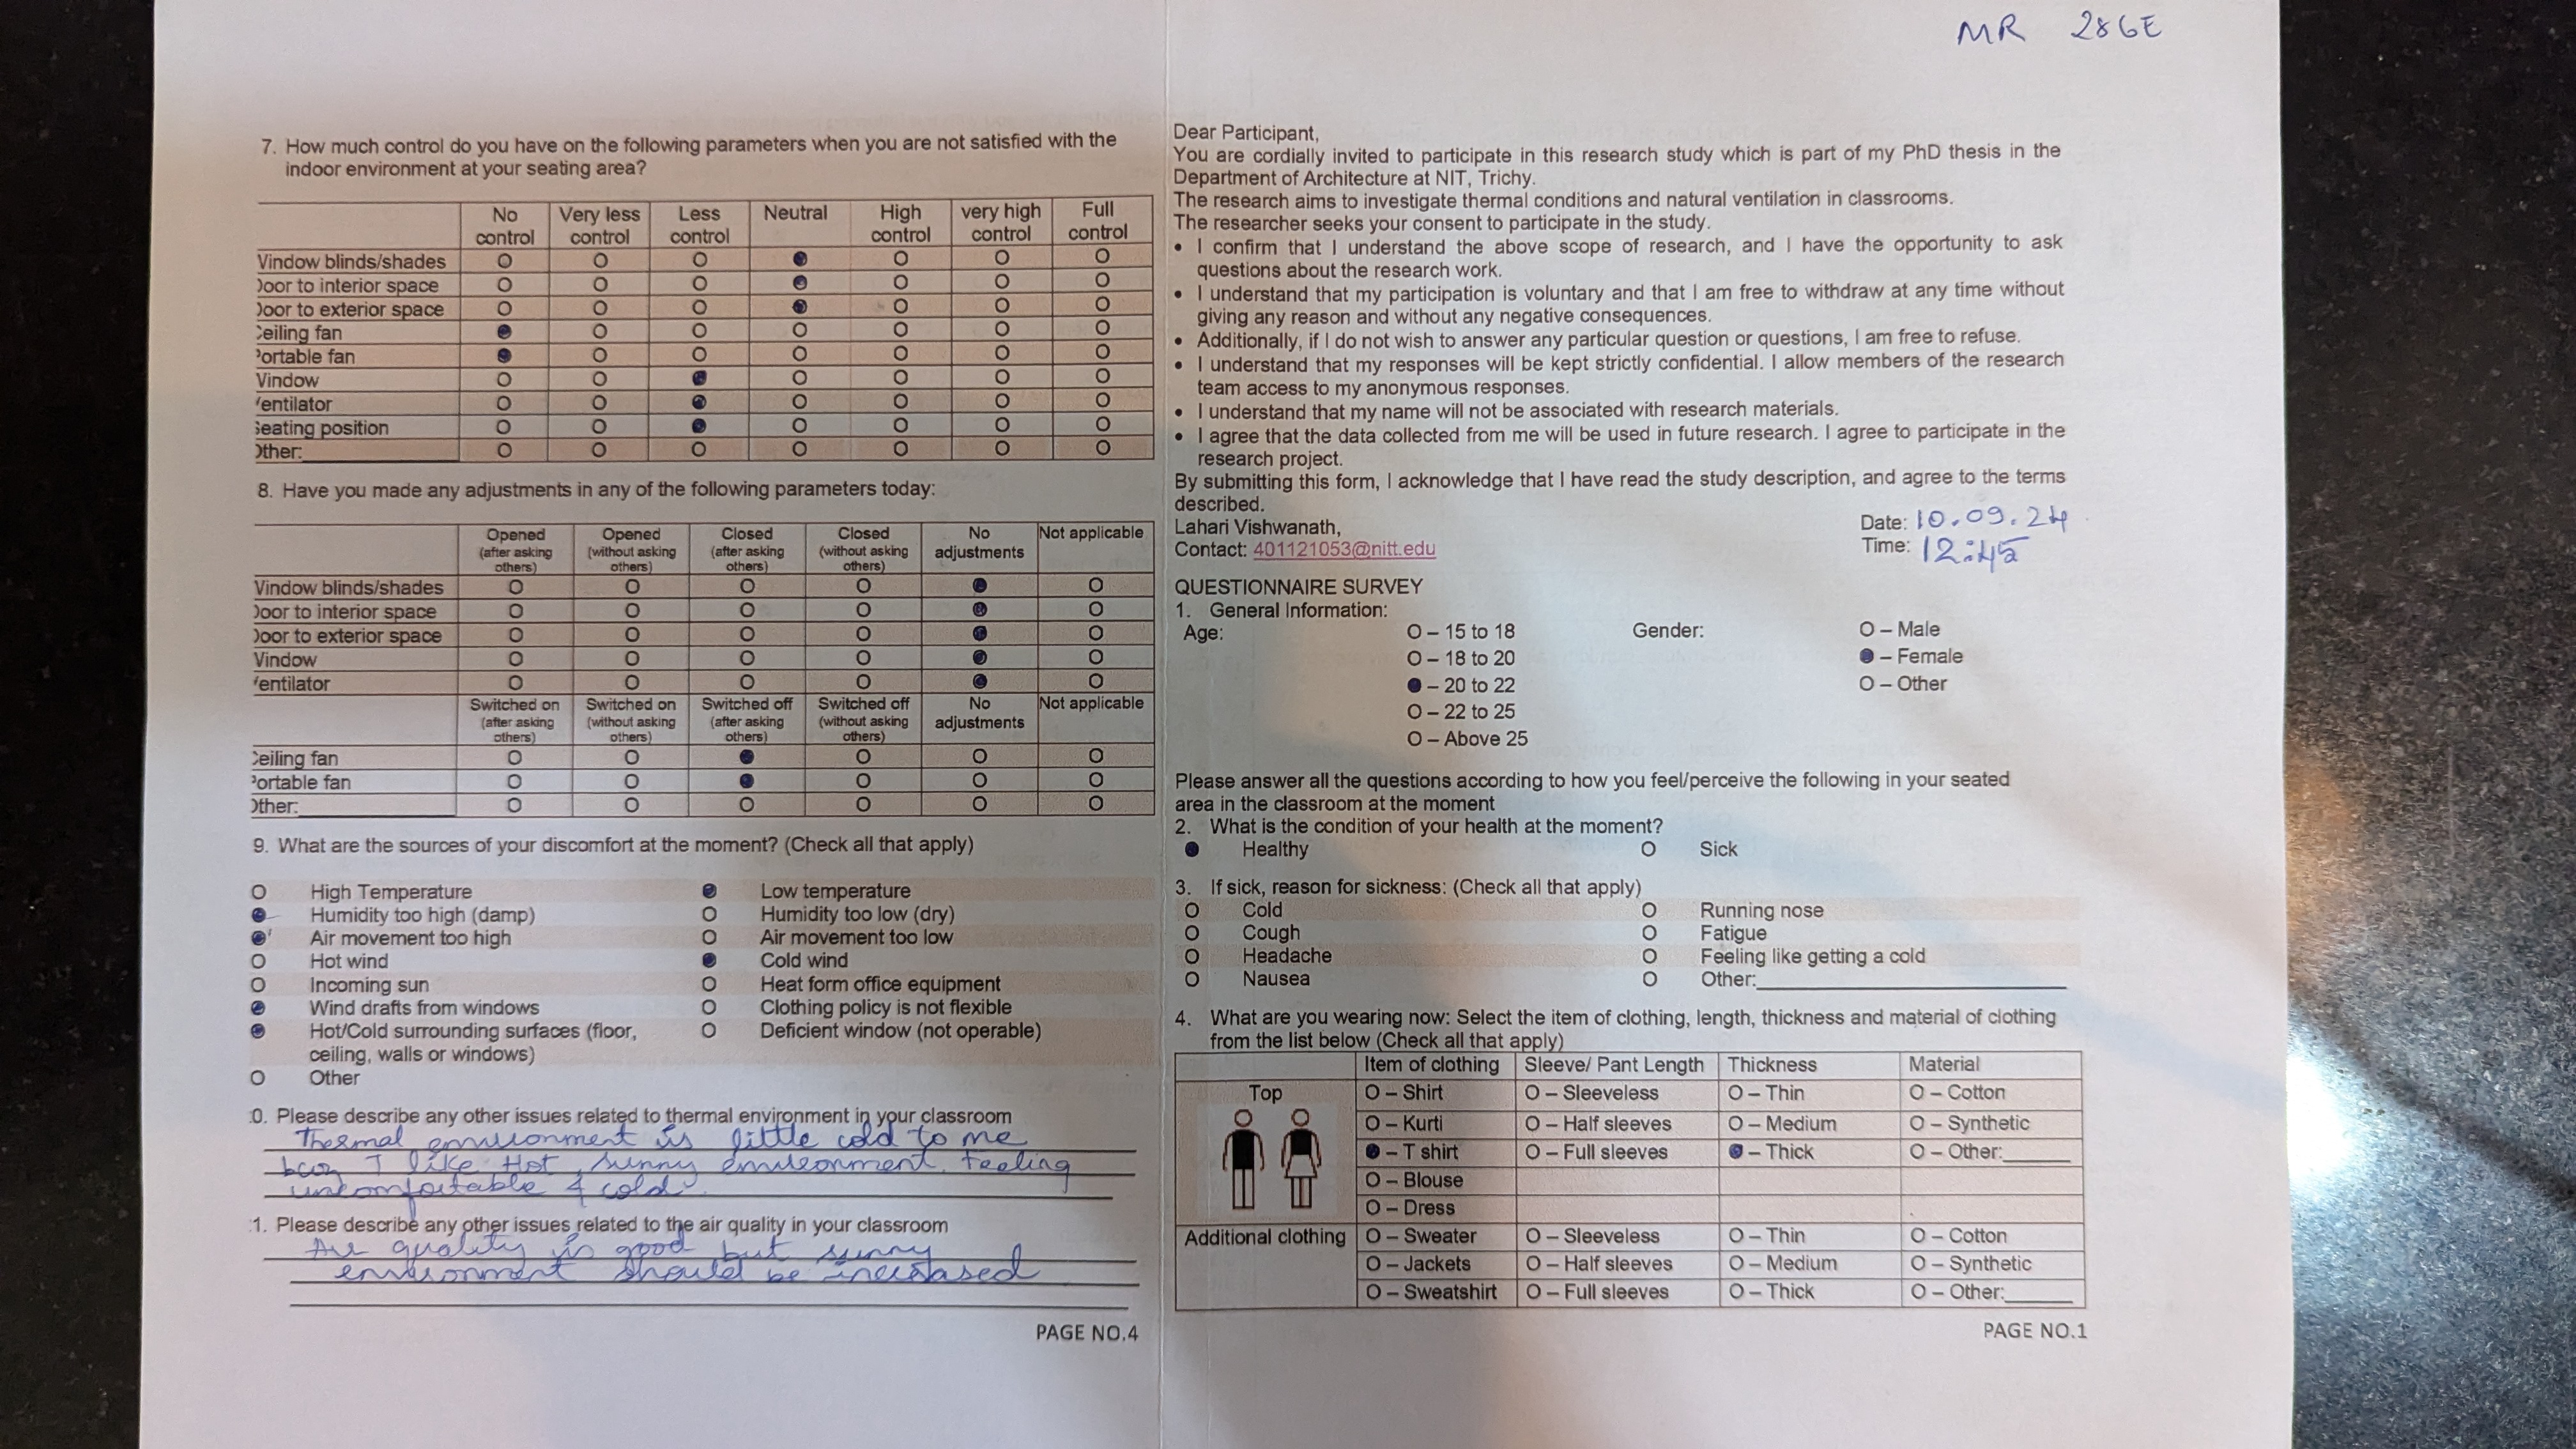 MR 286E
7. How much control do you have on the following parameters when you are not satisfied with the
indoor environment at your seating area?
No control Very less control Less control Neutral High control very high control Full control
Vindow blinds/shades O O O O O O
Door to interior space O O O O O O
Door to exterior space O O O O O O
Ceiling fan O O O O O O
Portable fan O O O O O O
Vindow O O O O O O
Ventilator O O O O O O
Seating position O O O O O O
Other: O O O O O O O
8. Have you made any adjustments in any of the following parameters today:
Opened (after asking others) Opened (without asking others) Closed (after asking others) Closed (without asking others) No adjustments Not applicable
Vindow blinds/shades O O O O O
Door to interior space O O O O O
Door to exterior space O O O O O
Vindow O O O O O
Ventilator O O O O O
Switched on (after asking others) Switched on (without asking others) Switched off (after asking others) Switched off (without asking others) No adjustments Not applicable
Ceiling fan O O O O O
Portable fan O O O O O
Other: O O O O O O
9. What are the sources of your discomfort at the moment? (Check all that apply)
O High Temperature Low temperature
Humidity too high (damp) O Humidity too low (dry)
Air movement too high O Air movement too low
O Hot wind Cold wind
O Incoming sun O Heat form office equipment
Wind drafts from windows O Clothing policy is not flexible
Hot/Cold surrounding surfaces (floor, O Deficient window (not operable)
ceiling, walls or windows)
O Other
0. Please describe any other issues related to thermal environment in your classroom
Thermal environment is little cold to me
bcoz I like Hot sunny environment. Feeling
uncomfortable & cold.
1. Please describe any other issues related to the air quality in your classroom
Air quality is good but sunny
environment should be increased
PAGE NO.4
Dear Participant,
You are cordially invited to participate in this research study which is part of my PhD thesis in the
Department of Architecture at NIT, Trichy.
The research aims to investigate thermal conditions and natural ventilation in classrooms.
The researcher seeks your consent to participate in the study.
• I confirm that I understand the above scope of research, and I have the opportunity to ask
questions about the research work.
• I understand that my participation is voluntary and that I am free to withdraw at any time without
giving any reason and without any negative consequences.
• Additionally, if I do not wish to answer any particular question or questions, I am free to refuse.
• I understand that my responses will be kept strictly confidential. I allow members of the research
team access to my anonymous responses.
• I understand that my name will not be associated with research materials.
• I agree that the data collected from me will be used in future research. I agree to participate in the
research project.
By submitting this form, I acknowledge that I have read the study description, and agree to the terms
described.
Lahari Vishwanath,
Contact: 401121053@nitt.edu
Date: 10.09.24
Time: 12:45
QUESTIONNAIRE SURVEY
1. General Information:
Age: O – 15 to 18 Gender: O – Male
O – 18 to 20 – Female
– 20 to 22 O – Other
O – 22 to 25
O – Above 25
Please answer all the questions according to how you feel/perceive the following in your seated
area in the classroom at the moment
2. What is the condition of your health at the moment?
Healthy O Sick
3. If sick, reason for sickness: (Check all that apply)
O Cold O Running nose
O Cough O Fatigue
O Headache O Feeling like getting a cold
O Nausea O Other:
4. What are you wearing now: Select the item of clothing, length, thickness and material of clothing
from the list below (Check all that apply)
Item of clothing Sleeve/ Pant Length Thickness Material
Top O – Shirt O – Sleeveless O – Thin O – Cotton
O – Kurti O – Half sleeves O – Medium O – Synthetic
– T shirt O – Full sleeves – Thick O – Other:
O – Blouse
O – Dress
Additional clothing O – Sweater O – Sleeveless O – Thin O – Cotton
O – Jackets O – Half sleeves O – Medium O – Synthetic
O – Sweatshirt O – Full sleeves O – Thick O – Other:
PAGE NO.1